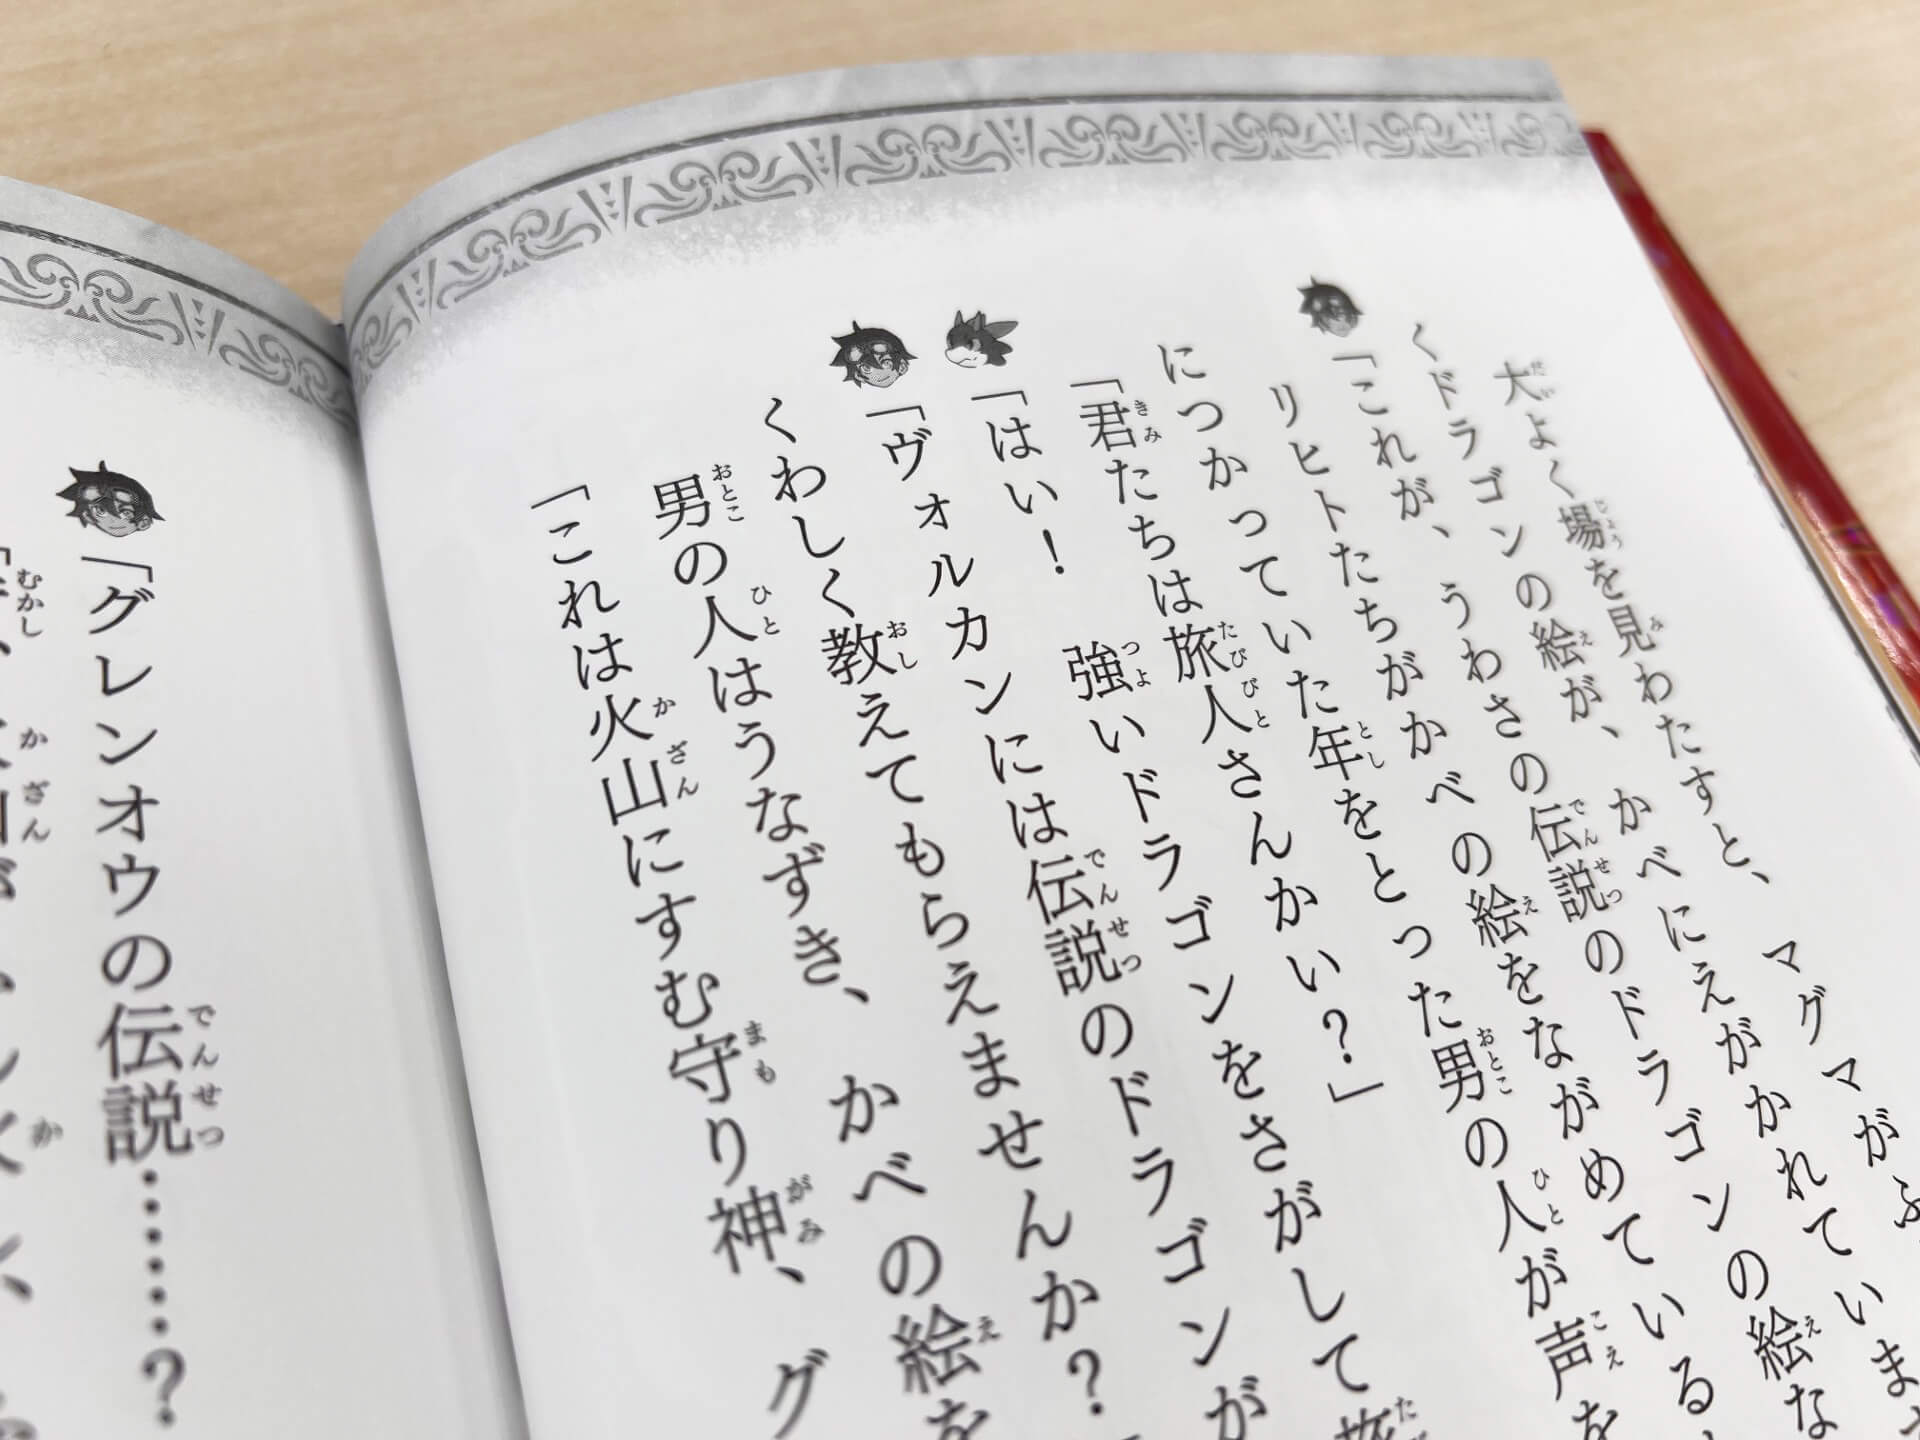 大よく場を見わたすと、マグマがふ
くドラゴンの絵が、かべにえがかれていま
「これが、うわさの伝説のドラゴンの絵な
リヒトたちがかべの絵をながめている
につかっていた年をとった男の人が声を
「君たちは旅人さんかい？」
「はい！　強いドラゴンをさがして旅
「ヴォルカンには伝説のドラゴンが
くわしく教えてもらえませんか？
男の人はうなずき、かべの絵を
「これは火山にすむ守り神、グ
「グレンオウの伝説……？